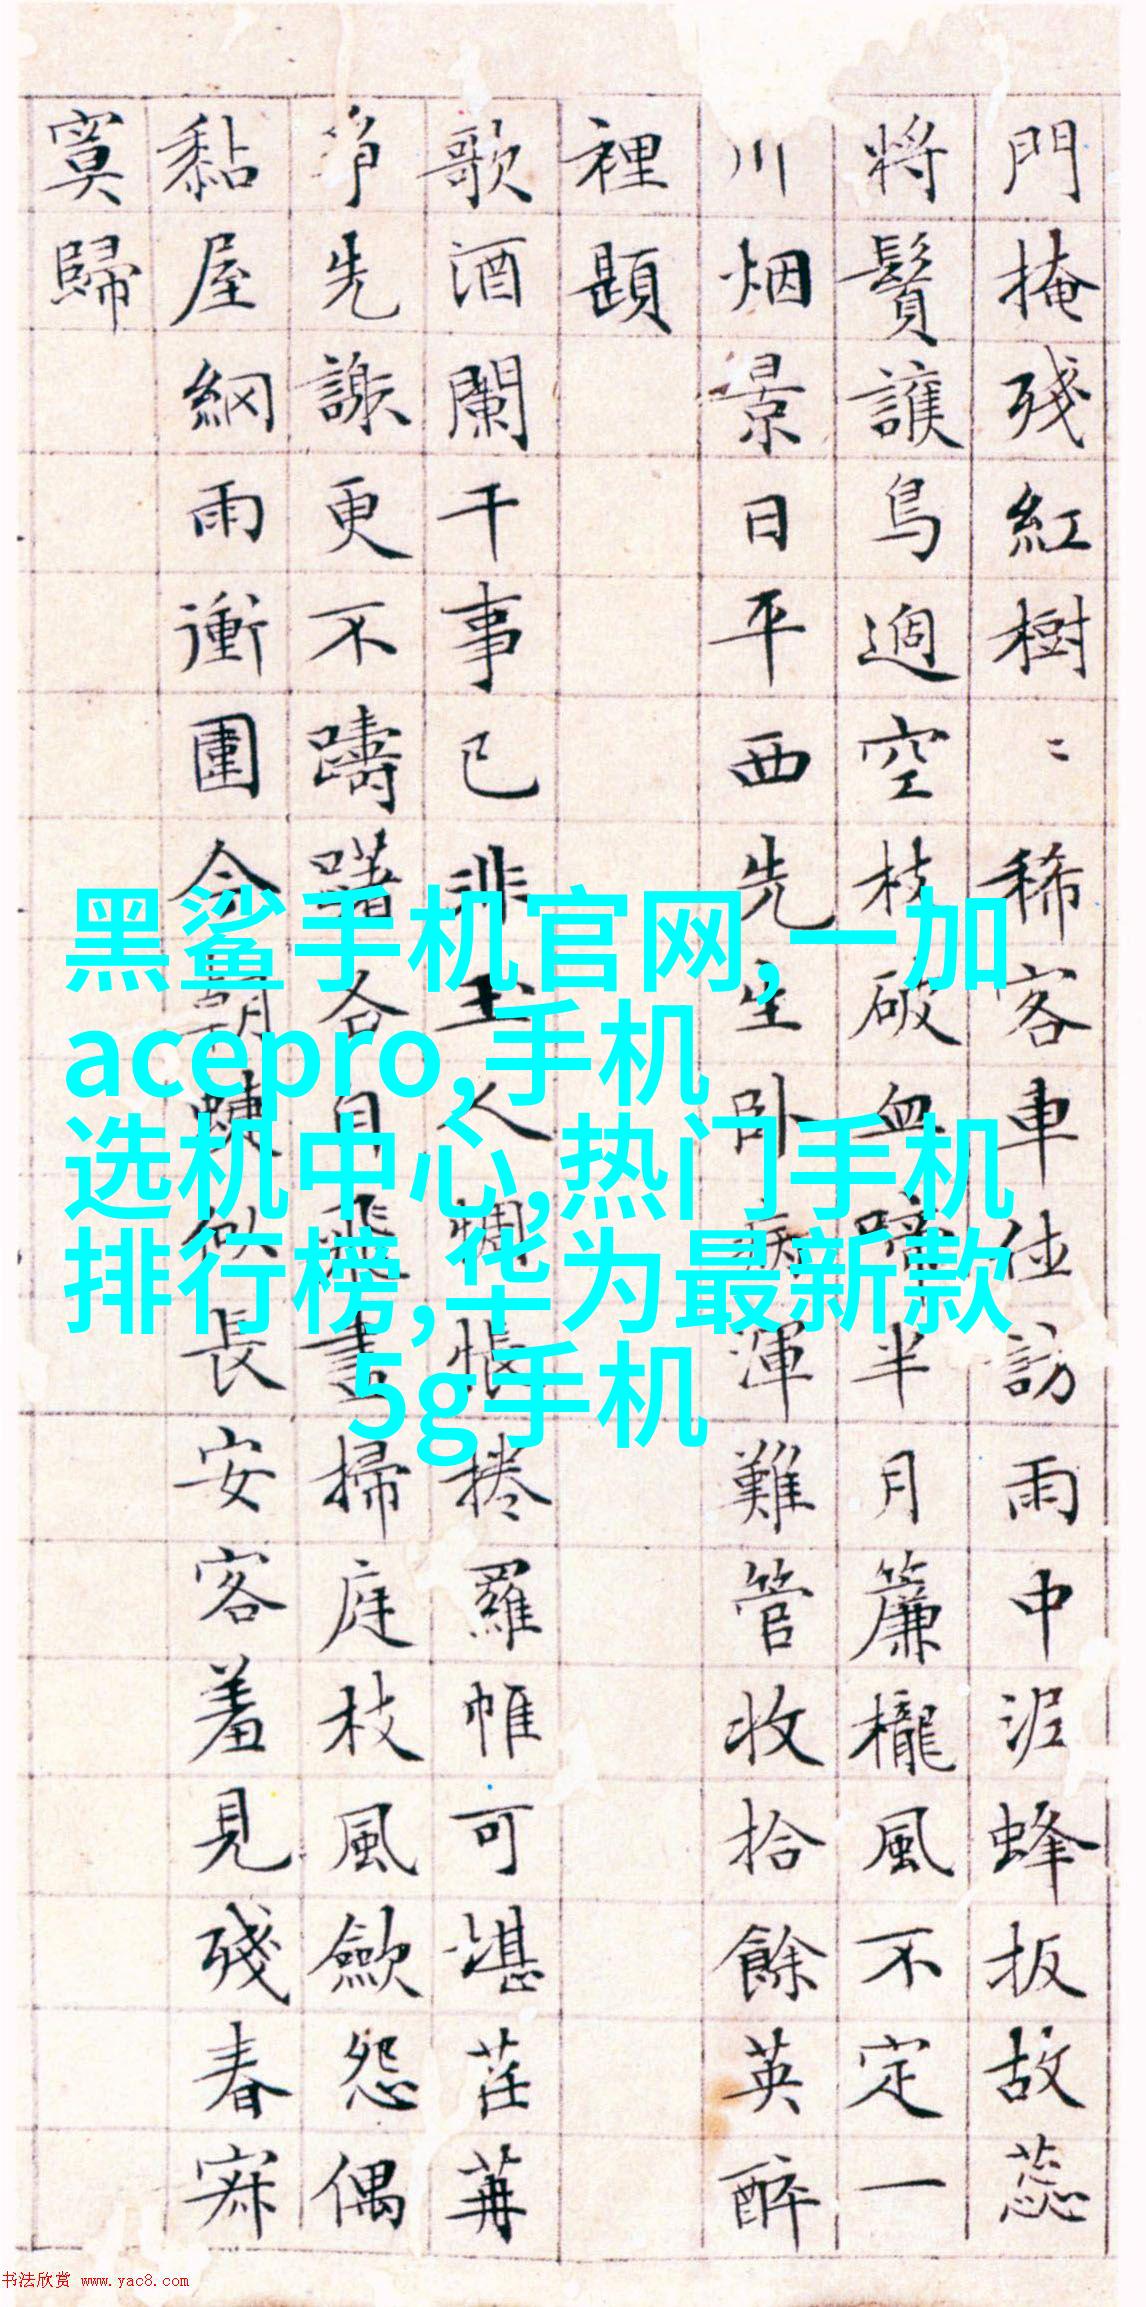 門掩殘紅樹〻稀客車佐訪雨中泥蜂扳故蕊
將鬢護鳥過空枝破血啼半月簾櫳風不定一
川烟景日平西先生卧病渾難管收拾餘英醉
裡題
歌酒闌干事已非主人惆悵捲羅帷可堪荏苒
爭先謝更不躊躇各自飛畫掃庭枝風歛怨偶
黏屋網雨衝圍今朝蛺似長安客羞見殘春寂
寞歸
黑鲨手机官网,一加
acepro,手机
选机中心,热门手机
排行榜,华为最新款
5g手机
书法欣赏 www.yac8.com